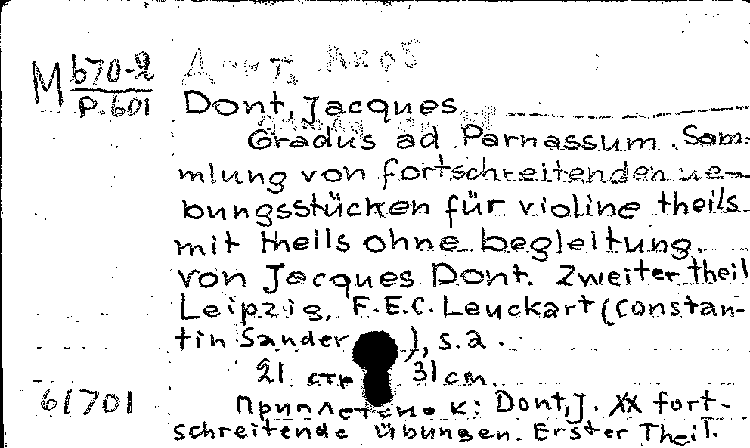 М 670-2
Р.601
Донт, Жак
Dont, Jacques
Gradus ad Parnassum. Sam-
mlung von fortschreitenden ue-
bungsstücken für violine theils
mit theils ohne begleitung
von Jacques Dont. Zweiter theil
Leipzig, F.E.C. Leuckart (Constan-
tin Sander), s.a.
21 стр 31 cm.
61701 Приплетено к: Dont, J. XX fort-
schreitende Übungen. Erster Theil.